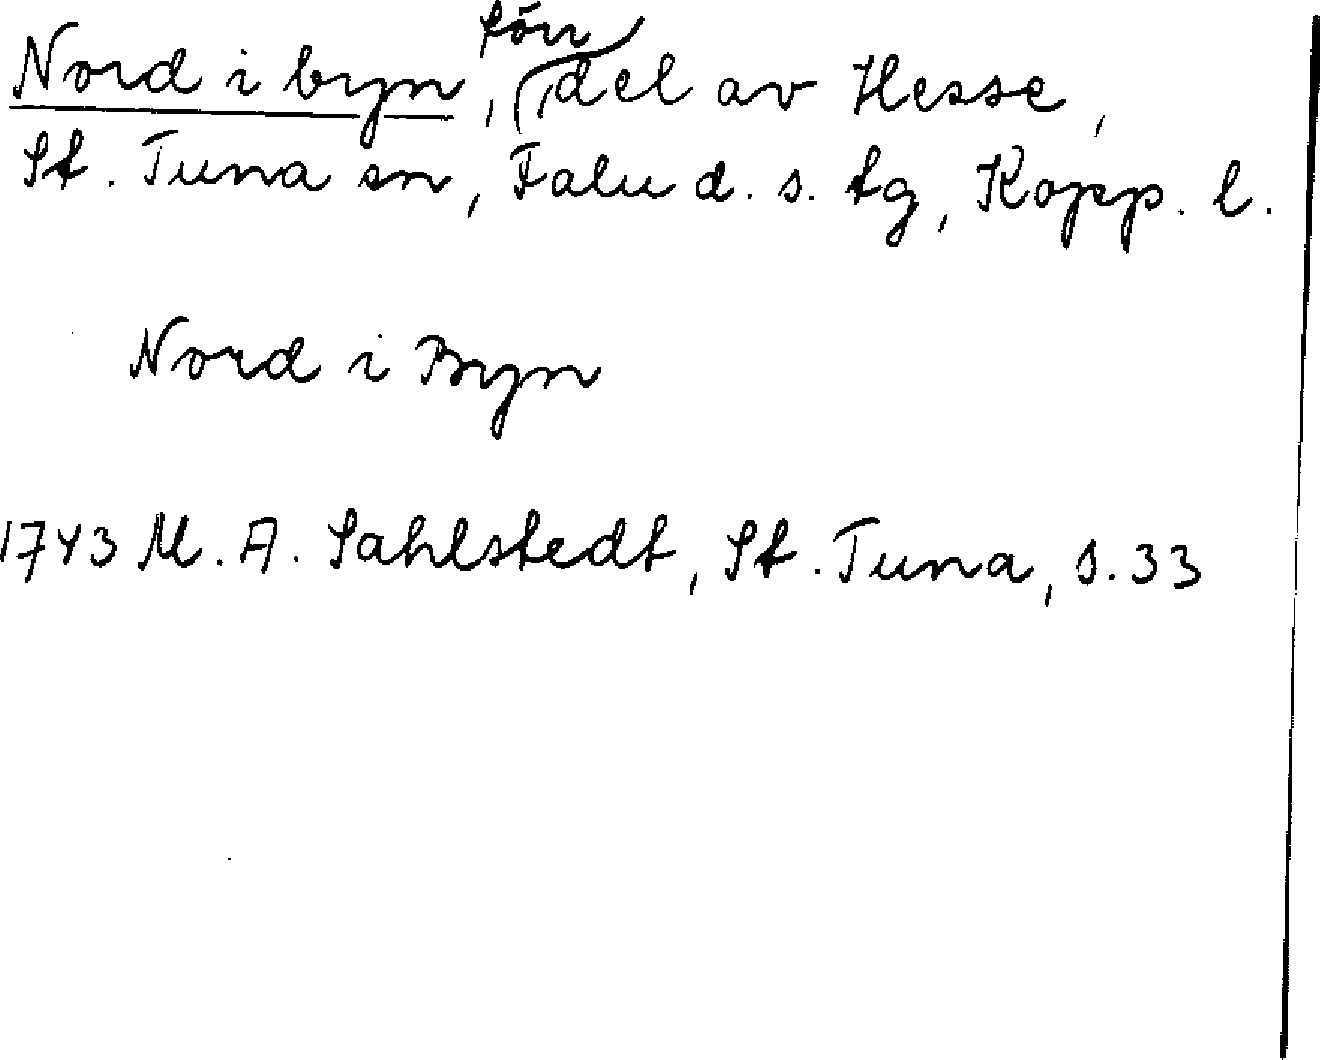 Nord i byn, förr del av Hesse,
St. Tuna sn, Falu d. s. tg, Kopp. l.
Nord i Byn
1743 M. A. Sahlstedt, St. Tuna, s. 33